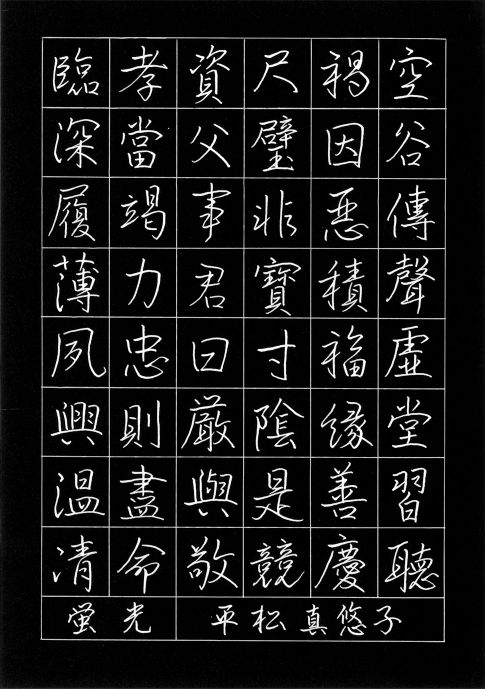 空谷傳聲虚堂習聽
禍因惡積福縁善慶
尺璧非寶寸陰是競
資父事君曰厳與敬
孝當竭力忠則盡命
臨深履薄夙興温凊
蛍光 平松真悠子